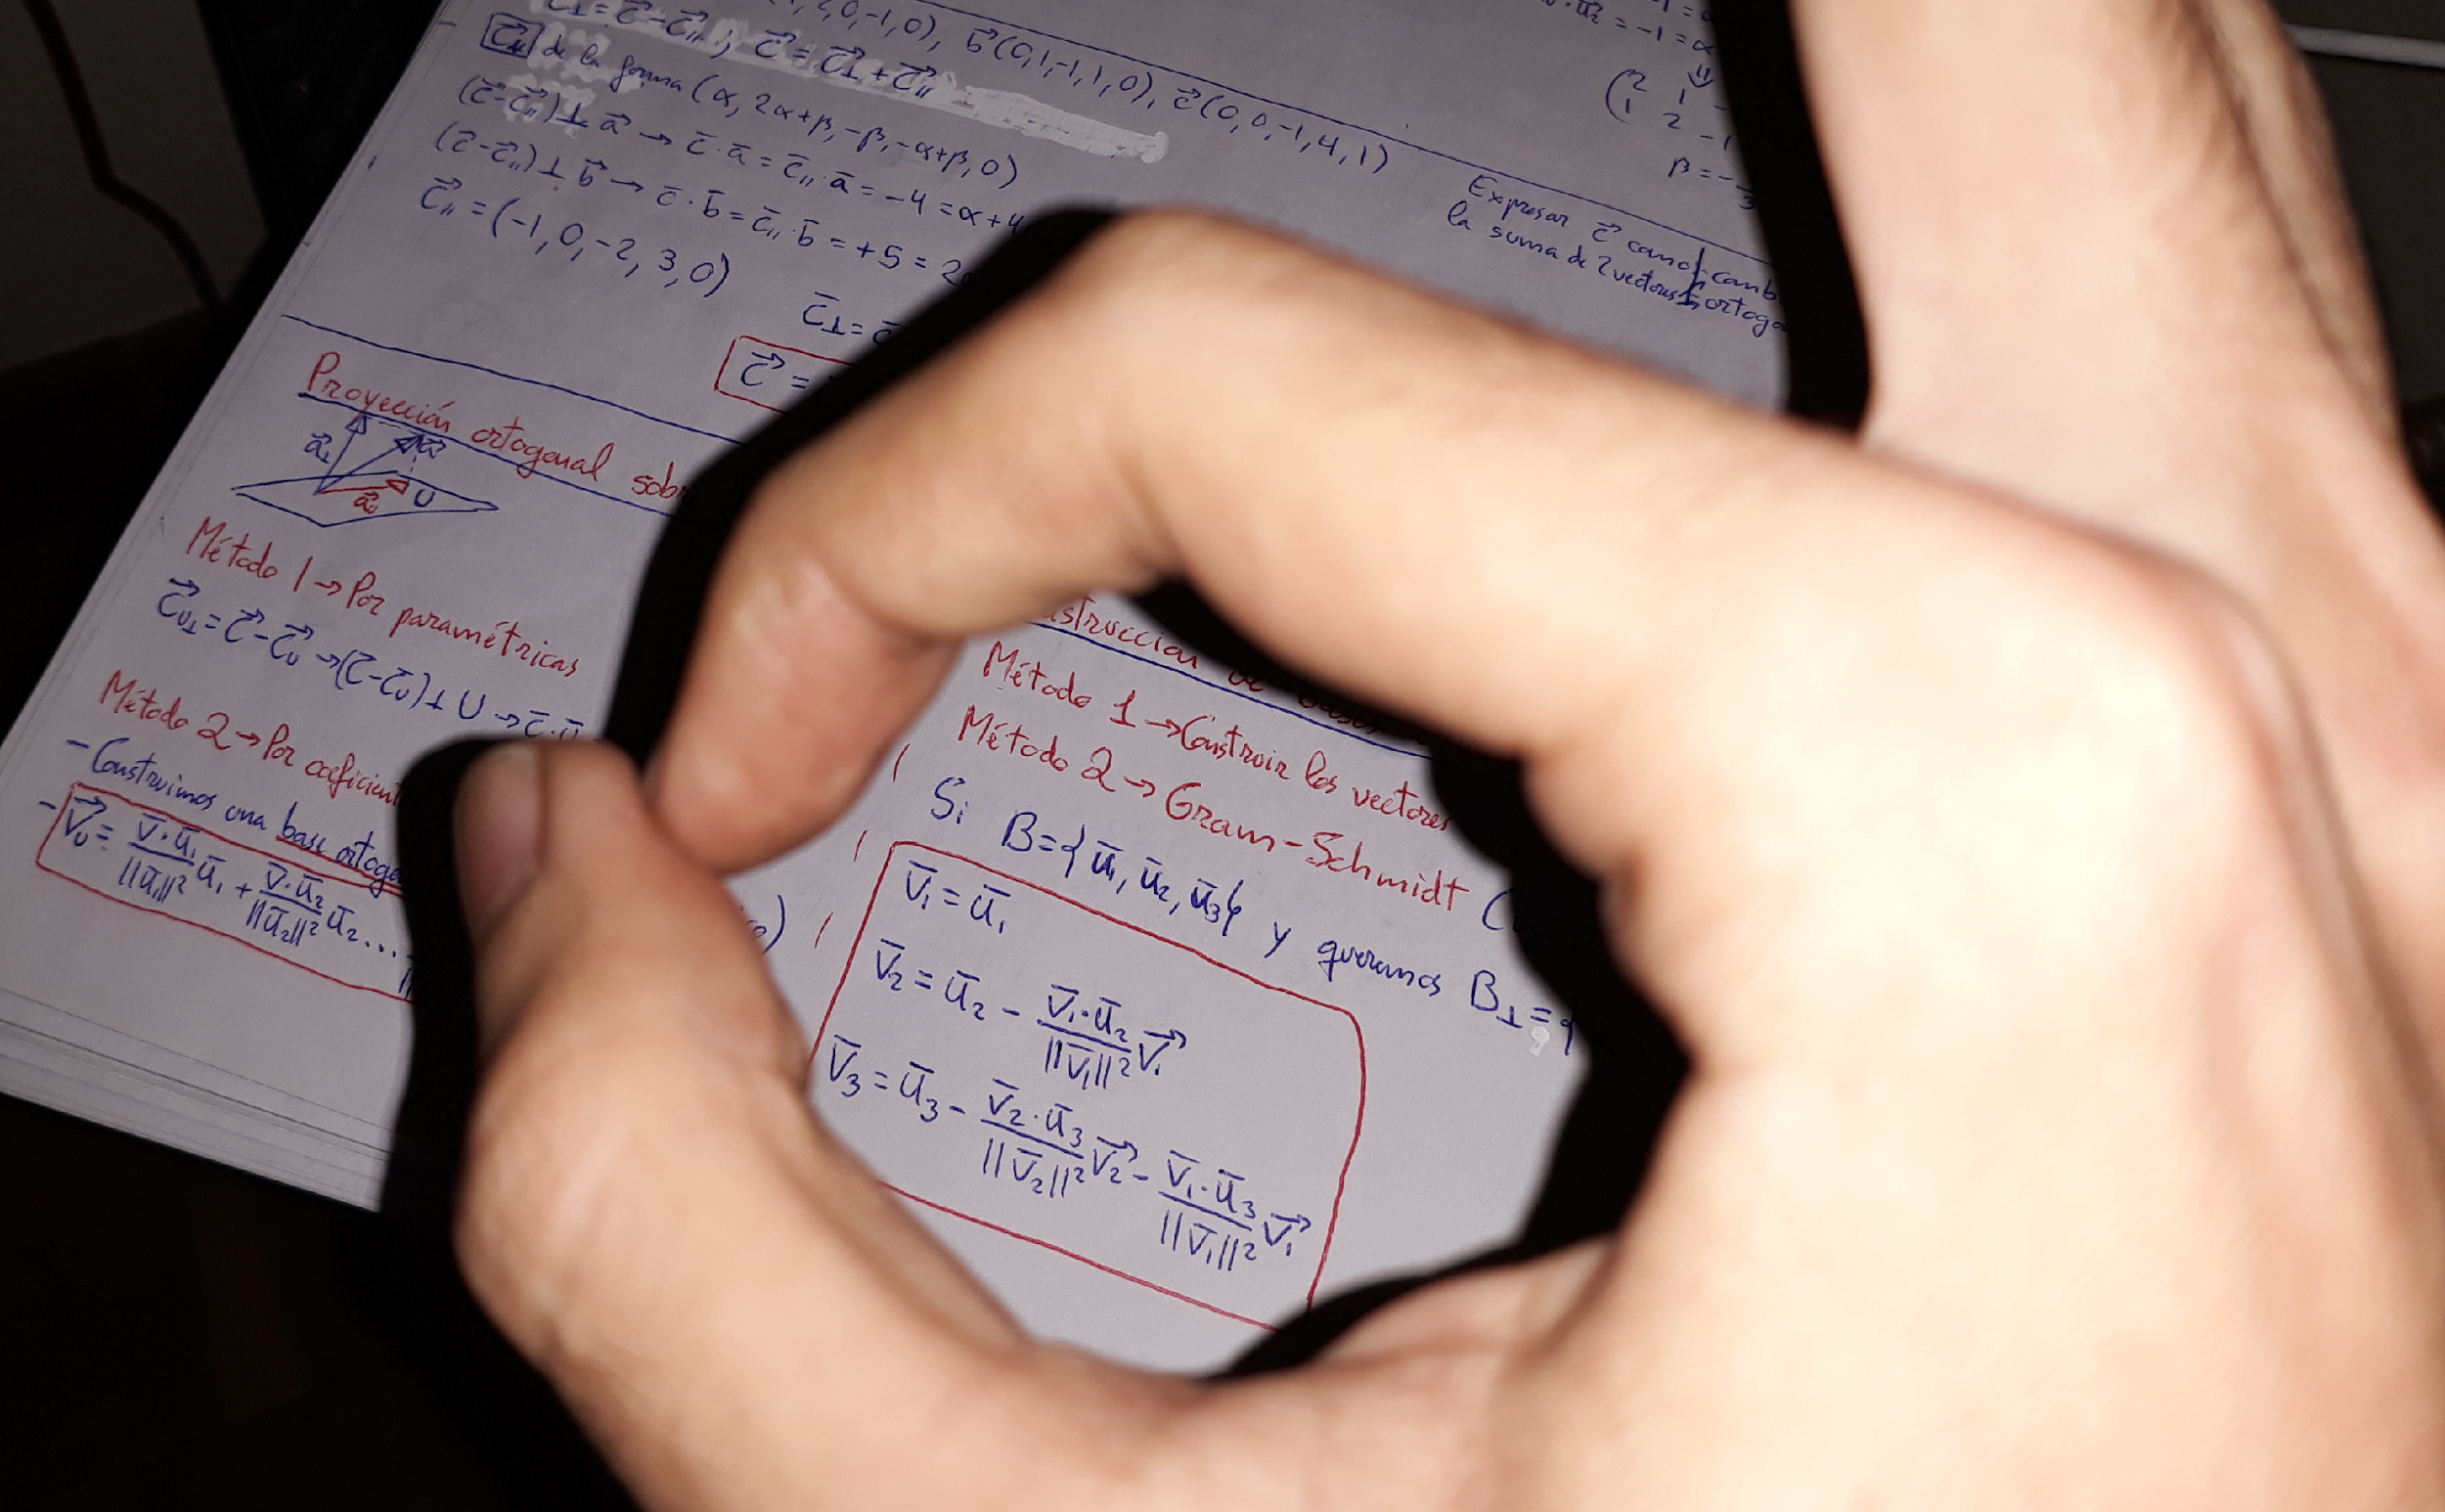 c⃗⊥ = c⃗ - c⃗∥ ; c⃗ = c⃗⊥ + c⃗∥
0, -1, 0), b⃗(0, 1, -1, 1, 0), c⃗(0, 0, -1, 4, 1)
c⃗∥ de la forma (α, 2α+β, -β, -α+β, 0)
(c⃗-c⃗∥) ⊥ a⃗ → c̄·ā = c̄∥·ā = -4 = α+4
(c⃗-c⃗∥) ⊥ b⃗ → c̄·b̄ = c̄∥·b̄ = +5 = 2α
c⃗∥ = (-1, 0, -2, 3, 0)
c̄⊥ =
c⃗ =
Expresar c⃗ como comb
la suma de 2 vectores ortogo
·ū₂ = -1 = α
2 1 -
1 2 -1
β = -
3
Proyección ortogonal sob
a⃗⊥ a⃗
a⃗ᵤ U
Método 1 → Por paramétricas
c⃗ᵤ⊥ = c⃗ - c⃗ᵤ → (c̄-c̄ᵤ) ⊥ U → c̄·ū
Método 2 → Por coeficient
- Construimos una base ortogo
- v⃗ᵤ = v̄·ū₁/||ū₁||² ū₁ + v̄·ū₂/||ū₂||² ū₂ ...
strucción de bases
Método 1 → Construir los vectores
Método 2 → Gram-Schmidt (
Si B = {ū₁, ū₂, ū₃} y queremos B⊥ = {
v̄₁ = ū₁
v̄₂ = ū₂ - v̄₁·ū₂/||v̄₁||² v⃗₁
v̄₃ = ū₃ - v̄₂·ū₃/||v̄₂||² v⃗₂ - v̄₁·ū₃/||v̄₁||² v⃗₁